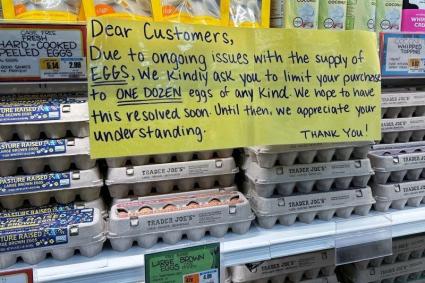 CAGE FREE
FRESH
HARD-COOKED
PEELED EGGS
Dear Customers,
Due to ongoing issues with the supply of
EGGS, We Kindly ask you to limit your purchase
to ONE DOZEN eggs of any Kind. We hope to have
this resolved soon. Until then, we appreciate your
understanding.
THANK YOU!
COCONUT
WHIPPED
TOPPING
PASTURE RAISED
LARGE BROWN EGGS
TRADER JOE'S
TRADER JOE'S
TRADER JOE'S
TRADER JOE'S
TRADER JOE'S
LARGE BROWN
EGGS